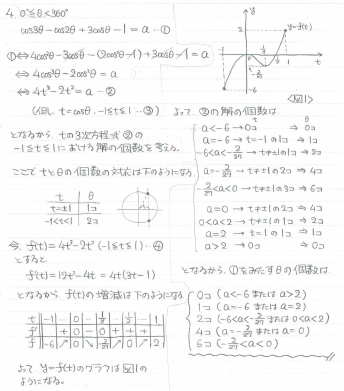 4. 0°≦θ<360°
cos3θ-cos2θ+3cosθ-1=a -①
①⇔4cos³θ-3cosθ-(2cos²θ-1)+3cosθ-1=a
⇔ 4cos³θ-2cos²θ=a
⇔ 4t³-2t²=a -②
(但し、t=cosθ, -1≦t≦1 …③)
となるから tの3次方程式②の
-1≦t≦1における解の個数を考える。
ここでtとθの個数の対応は下のようになる。
t θ
t=±1 1コ
-1<t<1 2コ
今、f(t)=4t³-2t² (-1≦t≦1) …④
とすると
f'(t)=12t²-4t=4t(3t-1)
となるから f(t)の増減は下のようになる
t -1 … 0 … 1/3 … 1
f' + 0 - 0 + +
f -6 ↗ 0 ↘ -2/27 ↗ 2
よって y=f(t)のグラフは図1の
ようになる。
y
y=f(t)
2
-1
1/3
1
t
-2/27
-6
<図1>
よって ②の解の個数は
t θ
a<-6 → 0コ ⇒ 0コ
a=-6 → t=-1の1コ ⇒ 1コ
-6<a<-2/27 → t≠±1の1コ ⇒ 2コ
a=-2/27 → t≠±1の2コ ⇒ 4コ
-2/27<a<0 → t≠±1の3コ ⇒ 6コ
a=0 → t≠±1の2コ ⇒ 4コ
0<a<2 → t≠±1の1コ ⇒ 2コ
a=2 → t=1の1コ ⇒ 1コ
a>2 → 0コ ⇒ 0コ
となるから、①をみたすθの個数は
0コ (a<-6 または a>2)
1コ (a=-6 または a=2)
2コ (-6<a<-2/27 または 0<a<2)
4コ (a=-2/27 または a=0)
6コ (-2/27<a<0)